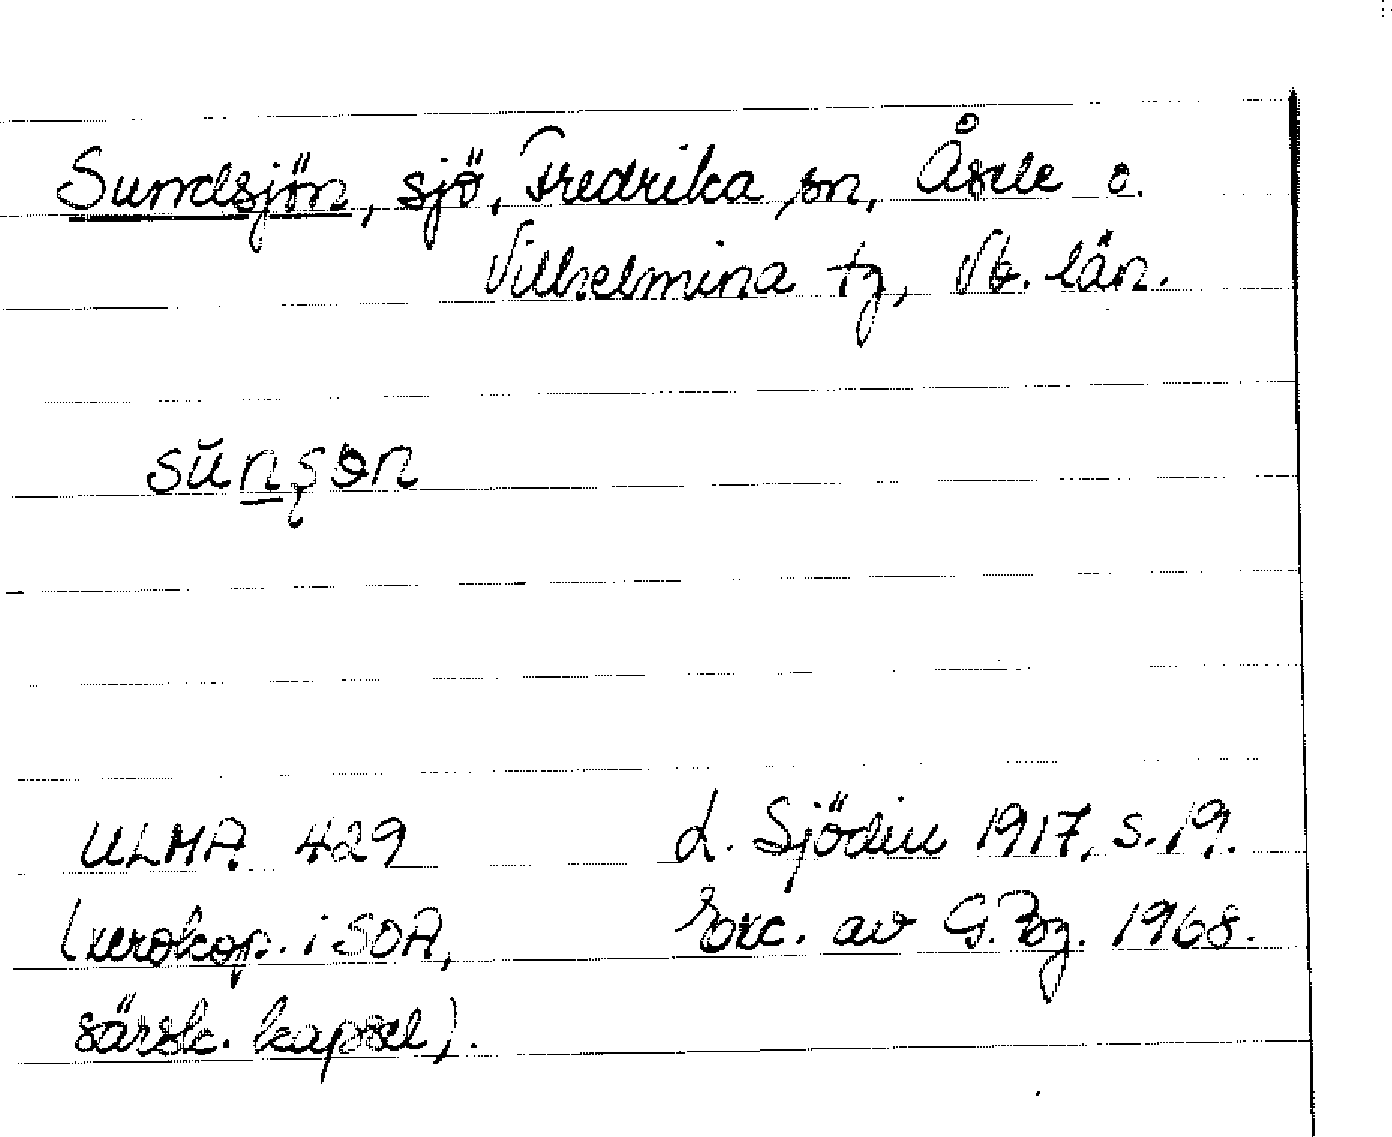 Sundsjön, sjö, Fredrika sn, Åsele o.
Vilhelmina tg, Vb. län.
sŭn̲şɘn
ULMA 429
(xerokop. i SOA,
särsk. kapsel).
L. Sjödin 1917, s. 19.
Exc. av G. Bg. 1968.